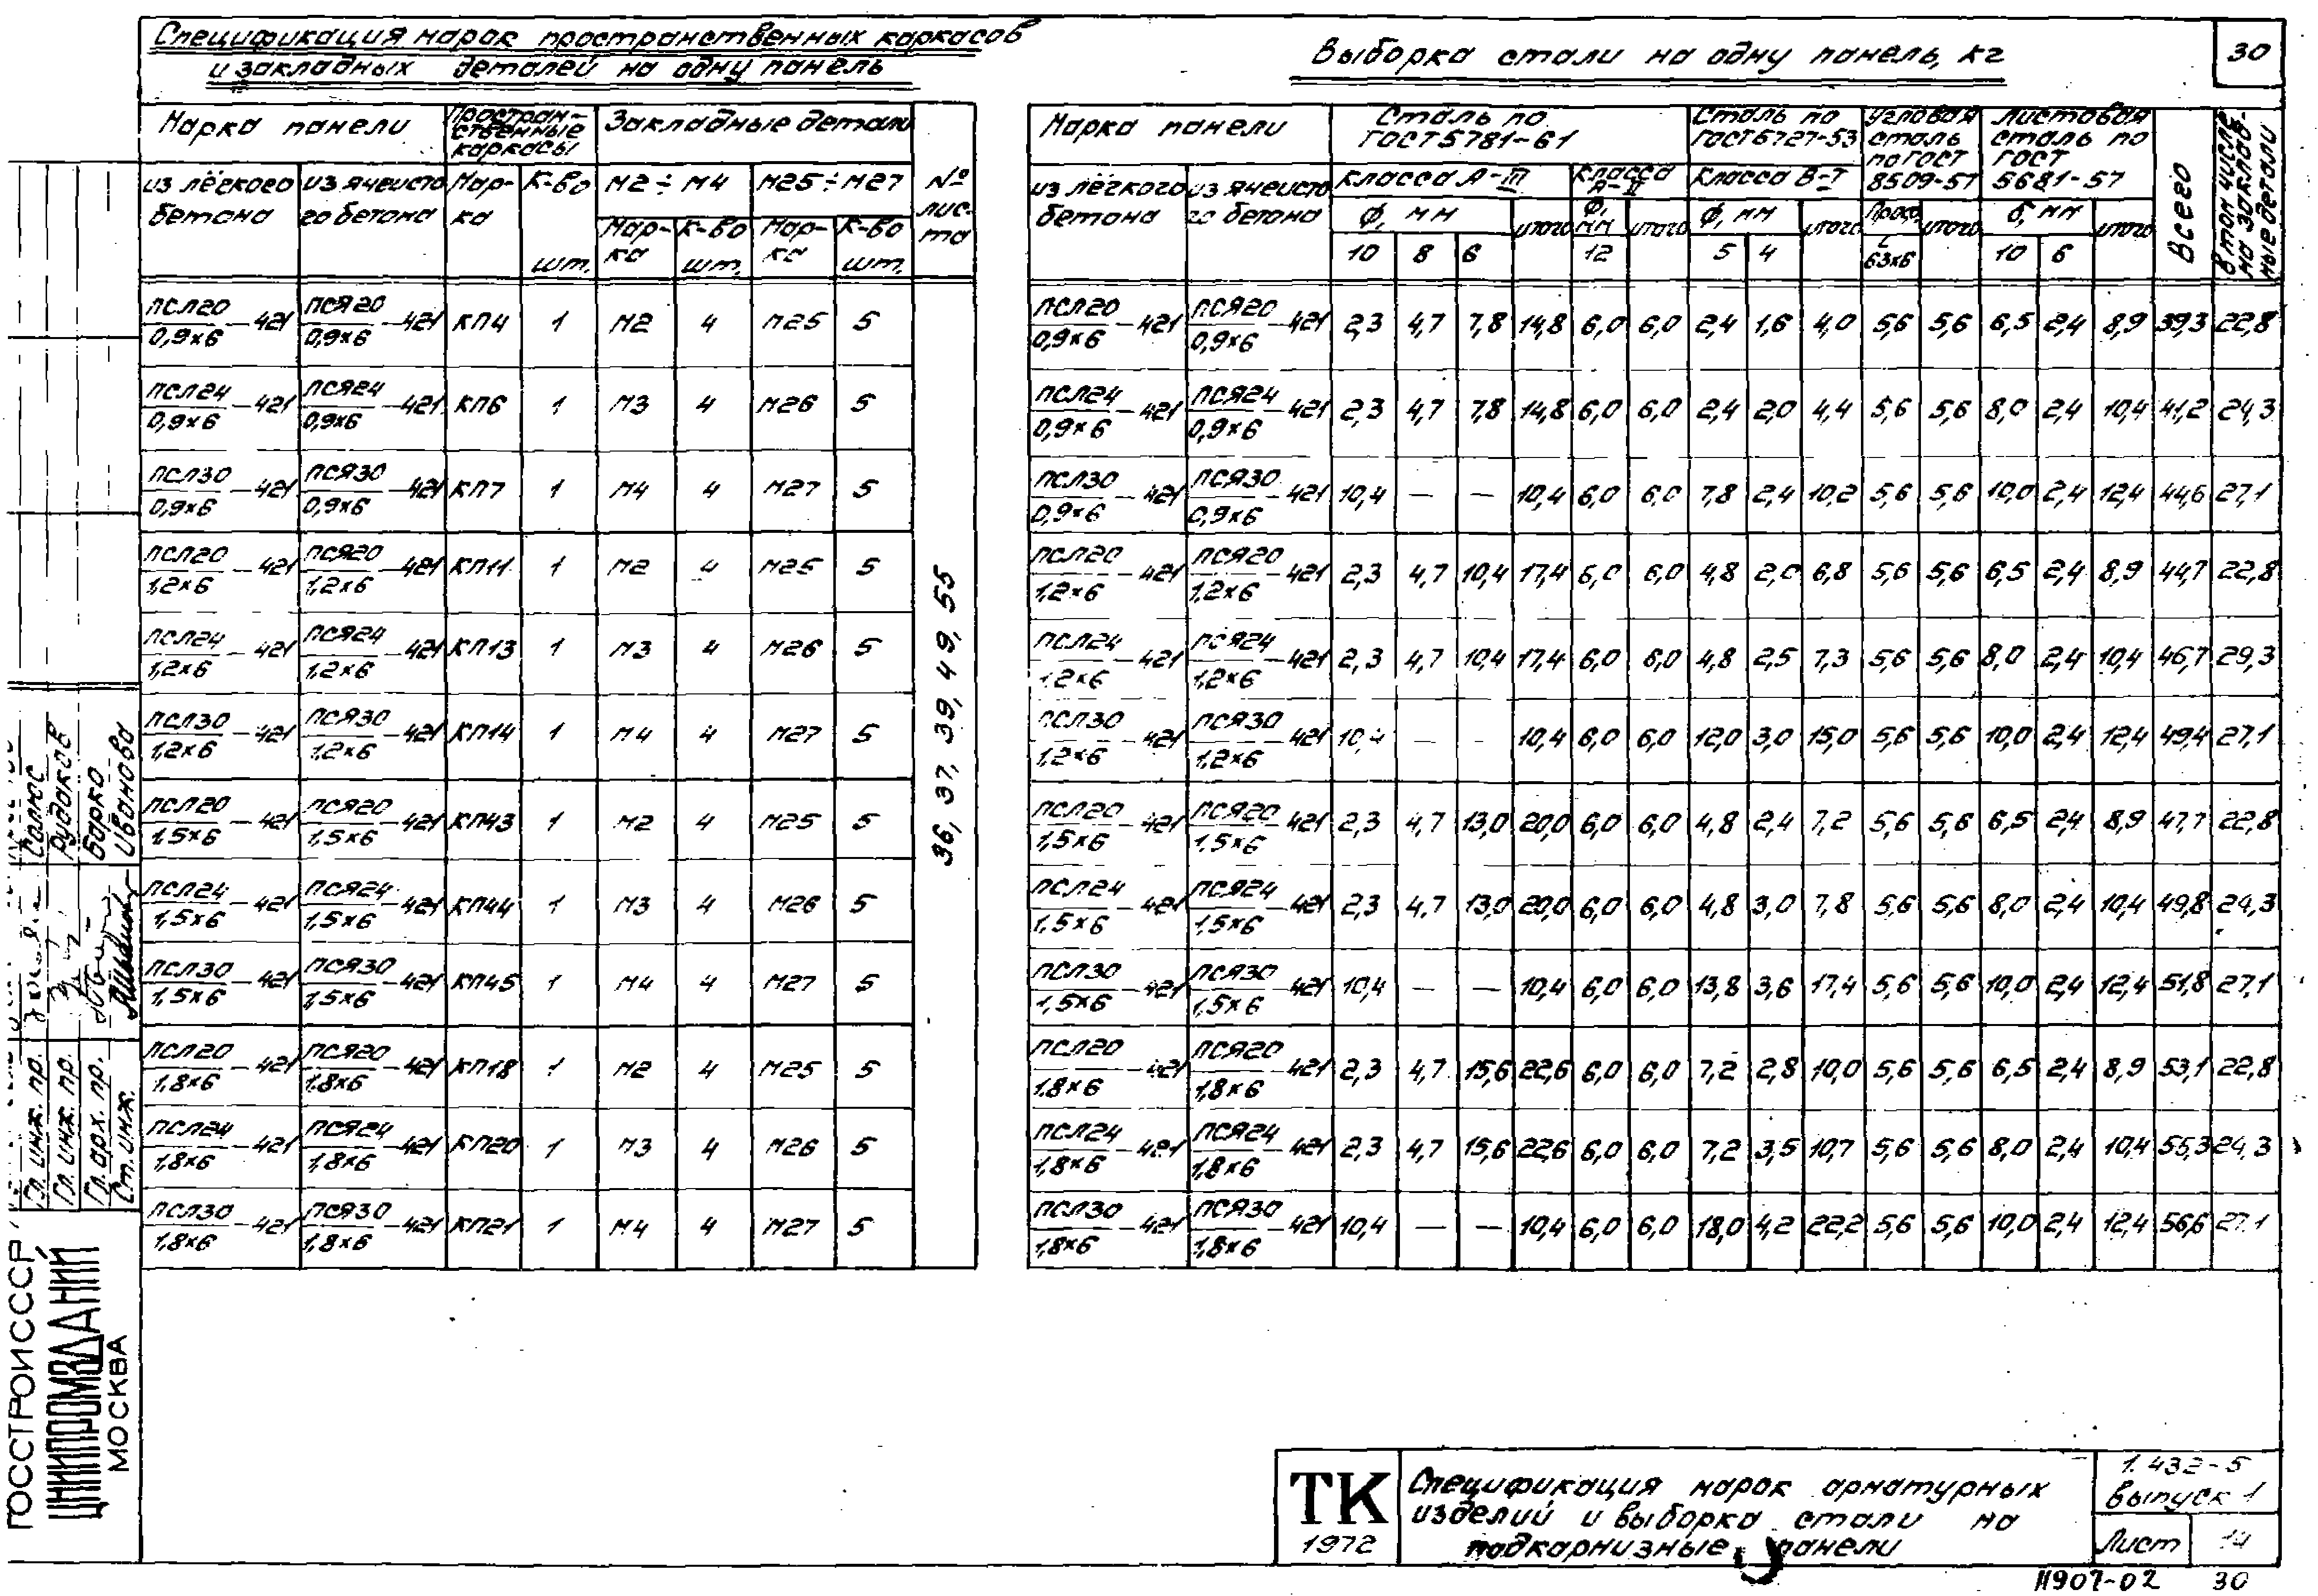 Спецификация марок пространственных каркасов
и закладных деталей на одну панель
Марка панели | Простран-ственные каркасы | Закладные детали | № лис-та
из лёгкого бетона | из ячеисто го бетона | Мар-ка | К-во шт. | М2 ÷ М4 | М25 ÷ М27
Мар-ка | К-во шт. | Мар-ка | К-во шт.
ПСЛ20/0,9×6 -421 | ПСЯ20/0,9×6 -421 | КП4 | 1 | М2 | 4 | М25 | 5
ПСЛ24/0,9×6 -421 | ПСЯ24/0,9×6 -421 | КП6 | 1 | М3 | 4 | М26 | 5
ПСЛ30/0,9×6 -421 | ПСЯ30/0,9×6 -421 | КП7 | 1 | М4 | 4 | М27 | 5
ПСЛ20/1,2×6 -421 | ПСЯ20/1,2×6 -421 | КП11 | 1 | М2 | 4 | М25 | 5
ПСЛ24/1,2×6 -421 | ПСЯ24/1,2×6 -421 | КП13 | 1 | М3 | 4 | М26 | 5
ПСЛ30/1,2×6 -421 | ПСЯ30/1,2×6 -421 | КП14 | 1 | М4 | 4 | М27 | 5
ПСЛ20/1,5×6 -421 | ПСЯ20/1,5×6 -421 | КП43 | 1 | М2 | 4 | М25 | 5
ПСЛ24/1,5×6 -421 | ПСЯ24/1,5×6 -421 | КП44 | 1 | М3 | 4 | М26 | 5
ПСЛ30/1,5×6 -421 | ПСЯ30/1,5×6 -421 | КП45 | 1 | М4 | 4 | М27 | 5
ПСЛ20/1,8×6 -421 | ПСЯ20/1,8×6 -421 | КП18 | 1 | М2 | 4 | М25 | 5
ПСЛ24/1,8×6 -421 | ПСЯ24/1,8×6 -421 | КП20 | 1 | М3 | 4 | М26 | 5
ПСЛ30/1,8×6 -421 | ПСЯ30/1,8×6 -421 | КП21 | 1 | М4 | 4 | М27 | 5
36, 37, 39, 49, 55
Выборка стали на одну панель, кг
30
Марка панели | Сталь по ГОСТ 5781-61 | Сталь по ГОСТ 6727-53 | Угловая сталь по ГОСТ 8509-57 | Листовая сталь по ГОСТ 5681-57 | Всего | В том числе на заклад-ные детали
из лёгкого бетона | из ячеисто го бетона | Класса А-III | Класса А-II | Класса В-I
Ф, мм | итого | Ф, мм | итого | Ф, мм | итого | Проф. | итого | δ, мм | итого
10 | 8 | 6 | 12 | 5 | 4 | L 63×6 | 10 | 6
ПСЛ20/0,9×6 -421 | ПСЯ20/0,9×6 -421 | 2,3 | 4,7 | 7,8 | 14,8 | 6,0 | 6,0 | 2,4 | 1,6 | 4,0 | 5,6 | 5,6 | 6,5 | 2,4 | 8,9 | 39,3 | 22,8
ПСЛ24/0,9×6 -421 | ПСЯ24/0,9×6 -421 | 2,3 | 4,7 | 7,8 | 14,8 | 6,0 | 6,0 | 2,4 | 2,0 | 4,4 | 5,6 | 5,6 | 8,0 | 2,4 | 10,4 | 41,2 | 24,3
ПСЛ30/0,9×6 -421 | ПСЯ30/0,9×6 -421 | 10,4 | — | — | 10,4 | 6,0 | 6,0 | 7,8 | 2,4 | 10,2 | 5,6 | 5,6 | 10,0 | 2,4 | 12,4 | 44,6 | 27,1
ПСЛ20/1,2×6 -421 | ПСЯ20/1,2×6 -421 | 2,3 | 4,7 | 10,4 | 17,4 | 6,0 | 6,0 | 4,8 | 2,0 | 6,8 | 5,6 | 5,6 | 6,5 | 2,4 | 8,9 | 44,7 | 22,8
ПСЛ24/1,2×6 -421 | ПСЯ24/1,2×6 -421 | 2,3 | 4,7 | 10,4 | 17,4 | 6,0 | 6,0 | 4,8 | 2,5 | 7,3 | 5,6 | 5,6 | 8,0 | 2,4 | 10,4 | 46,7 | 29,3
ПСЛ30/1,2×6 -421 | ПСЯ30/1,2×6 -421 | 10,4 | — | — | 10,4 | 6,0 | 6,0 | 12,0 | 3,0 | 15,0 | 5,6 | 5,6 | 10,0 | 2,4 | 12,4 | 49,4 | 27,1
ПСЛ20/1,5×6 -421 | ПСЯ20/1,5×6 -421 | 2,3 | 4,7 | 13,0 | 20,0 | 6,0 | 6,0 | 4,8 | 2,4 | 7,2 | 5,6 | 5,6 | 6,5 | 2,4 | 8,9 | 47,7 | 22,8
ПСЛ24/1,5×6 -421 | ПСЯ24/1,5×6 -421 | 2,3 | 4,7 | 13,0 | 20,0 | 6,0 | 6,0 | 4,8 | 3,0 | 7,8 | 5,6 | 5,6 | 8,0 | 2,4 | 10,4 | 49,8 | 24,3
ПСЛ30/1,5×6 -421 | ПСЯ30/1,5×6 -421 | 10,4 | — | — | 10,4 | 6,0 | 6,0 | 13,8 | 3,6 | 17,4 | 5,6 | 5,6 | 10,0 | 2,4 | 12,4 | 51,8 | 27,1
ПСЛ20/1,8×6 -421 | ПСЯ20/1,8×6 -421 | 2,3 | 4,7 | 15,6 | 22,6 | 6,0 | 6,0 | 7,2 | 2,8 | 10,0 | 5,6 | 5,6 | 6,5 | 2,4 | 8,9 | 53,1 | 22,8
ПСЛ24/1,8×6 -421 | ПСЯ24/1,8×6 -421 | 2,3 | 4,7 | 15,6 | 22,6 | 6,0 | 6,0 | 7,2 | 3,5 | 10,7 | 5,6 | 5,6 | 8,0 | 2,4 | 10,4 | 55,3 | 24,3
ПСЛ30/1,8×6 -421 | ПСЯ30/1,8×6 -421 | 10,4 | — | — | 10,4 | 6,0 | 6,0 | 18,0 | 4,2 | 22,2 | 5,6 | 5,6 | 10,0 | 2,4 | 12,4 | 56,6 | 27,1
Гл. инж. пр. Салюс
Гл. инж. пр. Рудаков
Гл. арх. пр. Барко
Ст. инж. Иванова
ГОССТРОЙ СССР
ЦНИИПРОМЗДАНИЙ
МОСКВА
ТК
1972
Спецификация марок арматурных
изделий и выборка стали на
подкарнизные панели
1.432-5
Выпуск 1
Лист 14
11907-02 30